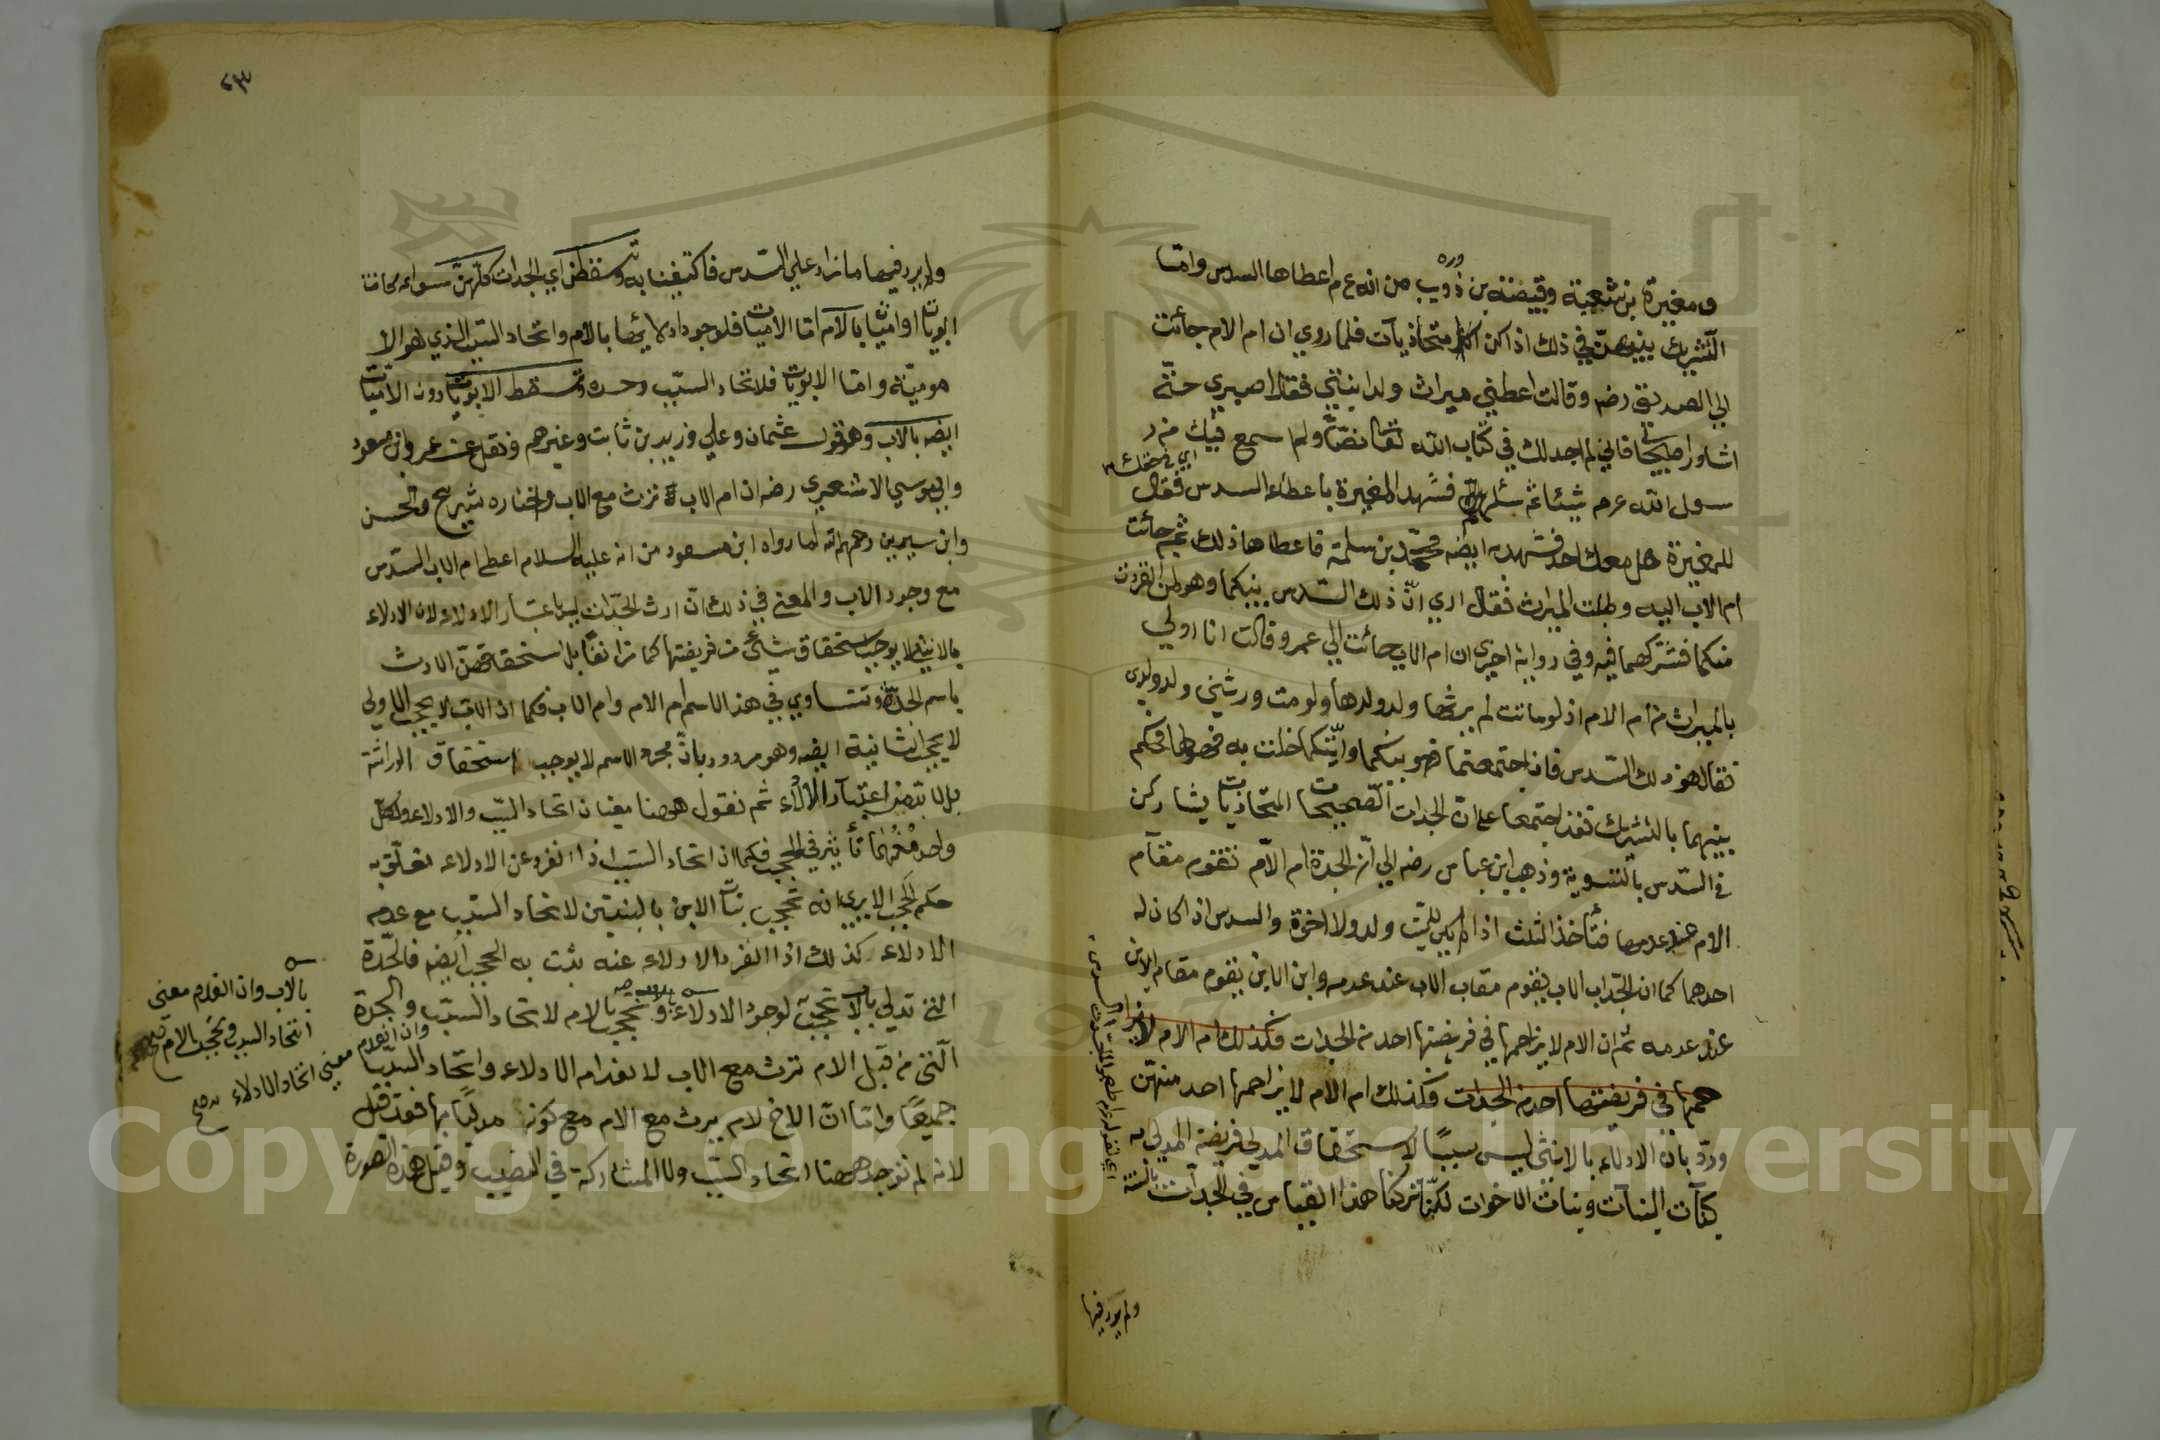 ومغيرة بن شعبة وقبيصة بن ذويب من انه ع م اعطاها السدس واما
التشريك بينهن في ذلك اذا كن اكثر متحاذيات فلما روي ان ام الام جائت
الي الصديق رضه وقالت اعطيني ميراث ولد ابنتي فقال اصبري حتي
اشاور اصحابي فاني لم اجد لك في كتاب الله تعا نصا ولم اسمع فيك من ر
اي في حقك
سول الله عم شيئا ثم سئلهم فشهد المغيرة باعطاء السدس فقال
للمغيرة هل معك احد فشهد به ايضه محمد بن سلمة فاعطاها ذلك ثم جائت
ام الاب اليه وطلبت الميراث فقال اري ان ذلك السدس بينكما وهو لمن انفردت
منكما فشركهما فيه وفي رواية اخري ان ام الاب جائت الي عمر وقالت انا اولي
بالميراث من ام الام اذ لو ماتت لم يرثها ولد ولدها ولو مت ورثني ولد ولدي
فقال هو ذلك السدس فان اجتمعتما فهو بينكما وايتكما خلت به فهو لها فحكم
بينهما بالتشريك فقد اجتمعا علي ان الجدات الصحيحات المتحاذيات يتشاركن
في السدس بالتسوية وذهب ابن عباس رضه الي ان الجدة ام الام تقوم مقام
الام عند عدمها فتأخذ الثلث اذا لم يكن للميت ولد ولا اخوة والسدس اذا كان له
احدهما كما ان الجد اب الاب يقوم مقاب الاب عند عدمه وابن الابن يقوم مقام الابن
عند عدمه ثم ان الام لا يزاحمها في فريضتها احد من الجدات فكذلك ام الام لا يزا
حمها في فريضتها احد من الجدات فكذلك ام الام لا يزاحمها احد منهن
ورد بان الادلاء بالانثي ليس سببا لاستحقاق المدلي فريضة المدلي به
كبنات البنات وبنات الاخوات لكنا تركنا هذا القياس في الجدات بالسنة
ولم يرد فيها
٦٣
ولم يرد فيها ما زاد علي السدس فاكتفينا به وتسقطن اي الجدات كلهن سواء كانت
ابويات او اميات بالام اما الاميات فلوجود ادلائها بالام واتحاد السبب الذي هو الا
موميّة واما الابويات فلاتحاد السبب وحده وتسقط الابويات دون الاميات
ايضه بالاب وهو قول عثمان وعلي وزيد بن ثابت وغيرهم ونقل عن عمر وابن مسعود
وابي موسي الاشعري رضه ان ام الاب ترث مع الاب واختاره شريح والحسن
وابن سيرين رحمهم الله لما رواه ابن مسعود من انه عليه السلام اعطي ام الاب السدس
مع وجود الاب والمعني في ذلك ان ارث الجدات ليس باعتبار الادلاء لان الادلاء
بالانثي لا يوجب استحقاق شيئ من فريضتها كما مر آنفا بل استحقاقهن الارث
باسم الجدة وتتساوي في هذا الاسم ام الام وام الاب فكما ان الاب لا يحجب الاولي
لا يحجب الثانية ايضه وهو مردود بان مجرد الاسم لا يوجب استحقاق الوراثة
بل لا بد من اعتبار الادلاء ثم نقول ههنا معنيان اتحاد السبب والادلاء ولكل
واحد منهما تأثير في الحجب فكما ان اتحاد السبب اذا انفرد عن الادلاء تعلق به
حكم الحجب الا يري انه تحجب بنات الابن بالبنتين لاتحاد السبب مع عدم
الادلاء كذلك اذا انفرد الادلاء عنه يثبت به الحجب ايضه فالجدة
التي تدلي بالاب تحجب لوجود الادلاء وتحجب بالام لاتحاد السبب والجدة
التي من قبل الام ترث مع الاب لانعدام الادلاء واتحاد السبب
جميعا واما ان الاخ لام يرث مع الام مع كونه مدليا بها فقد قيل
لانه لم توجد ههنا اتحاد السبب ولا المشاركة في النصيب وقيل هذه الصورة
بالاب وان انعدم معني
اتحاد السبب وتحجب بالام
وان انعدم
معني اتحاد الادلاء صح
Copyright © King Saud University